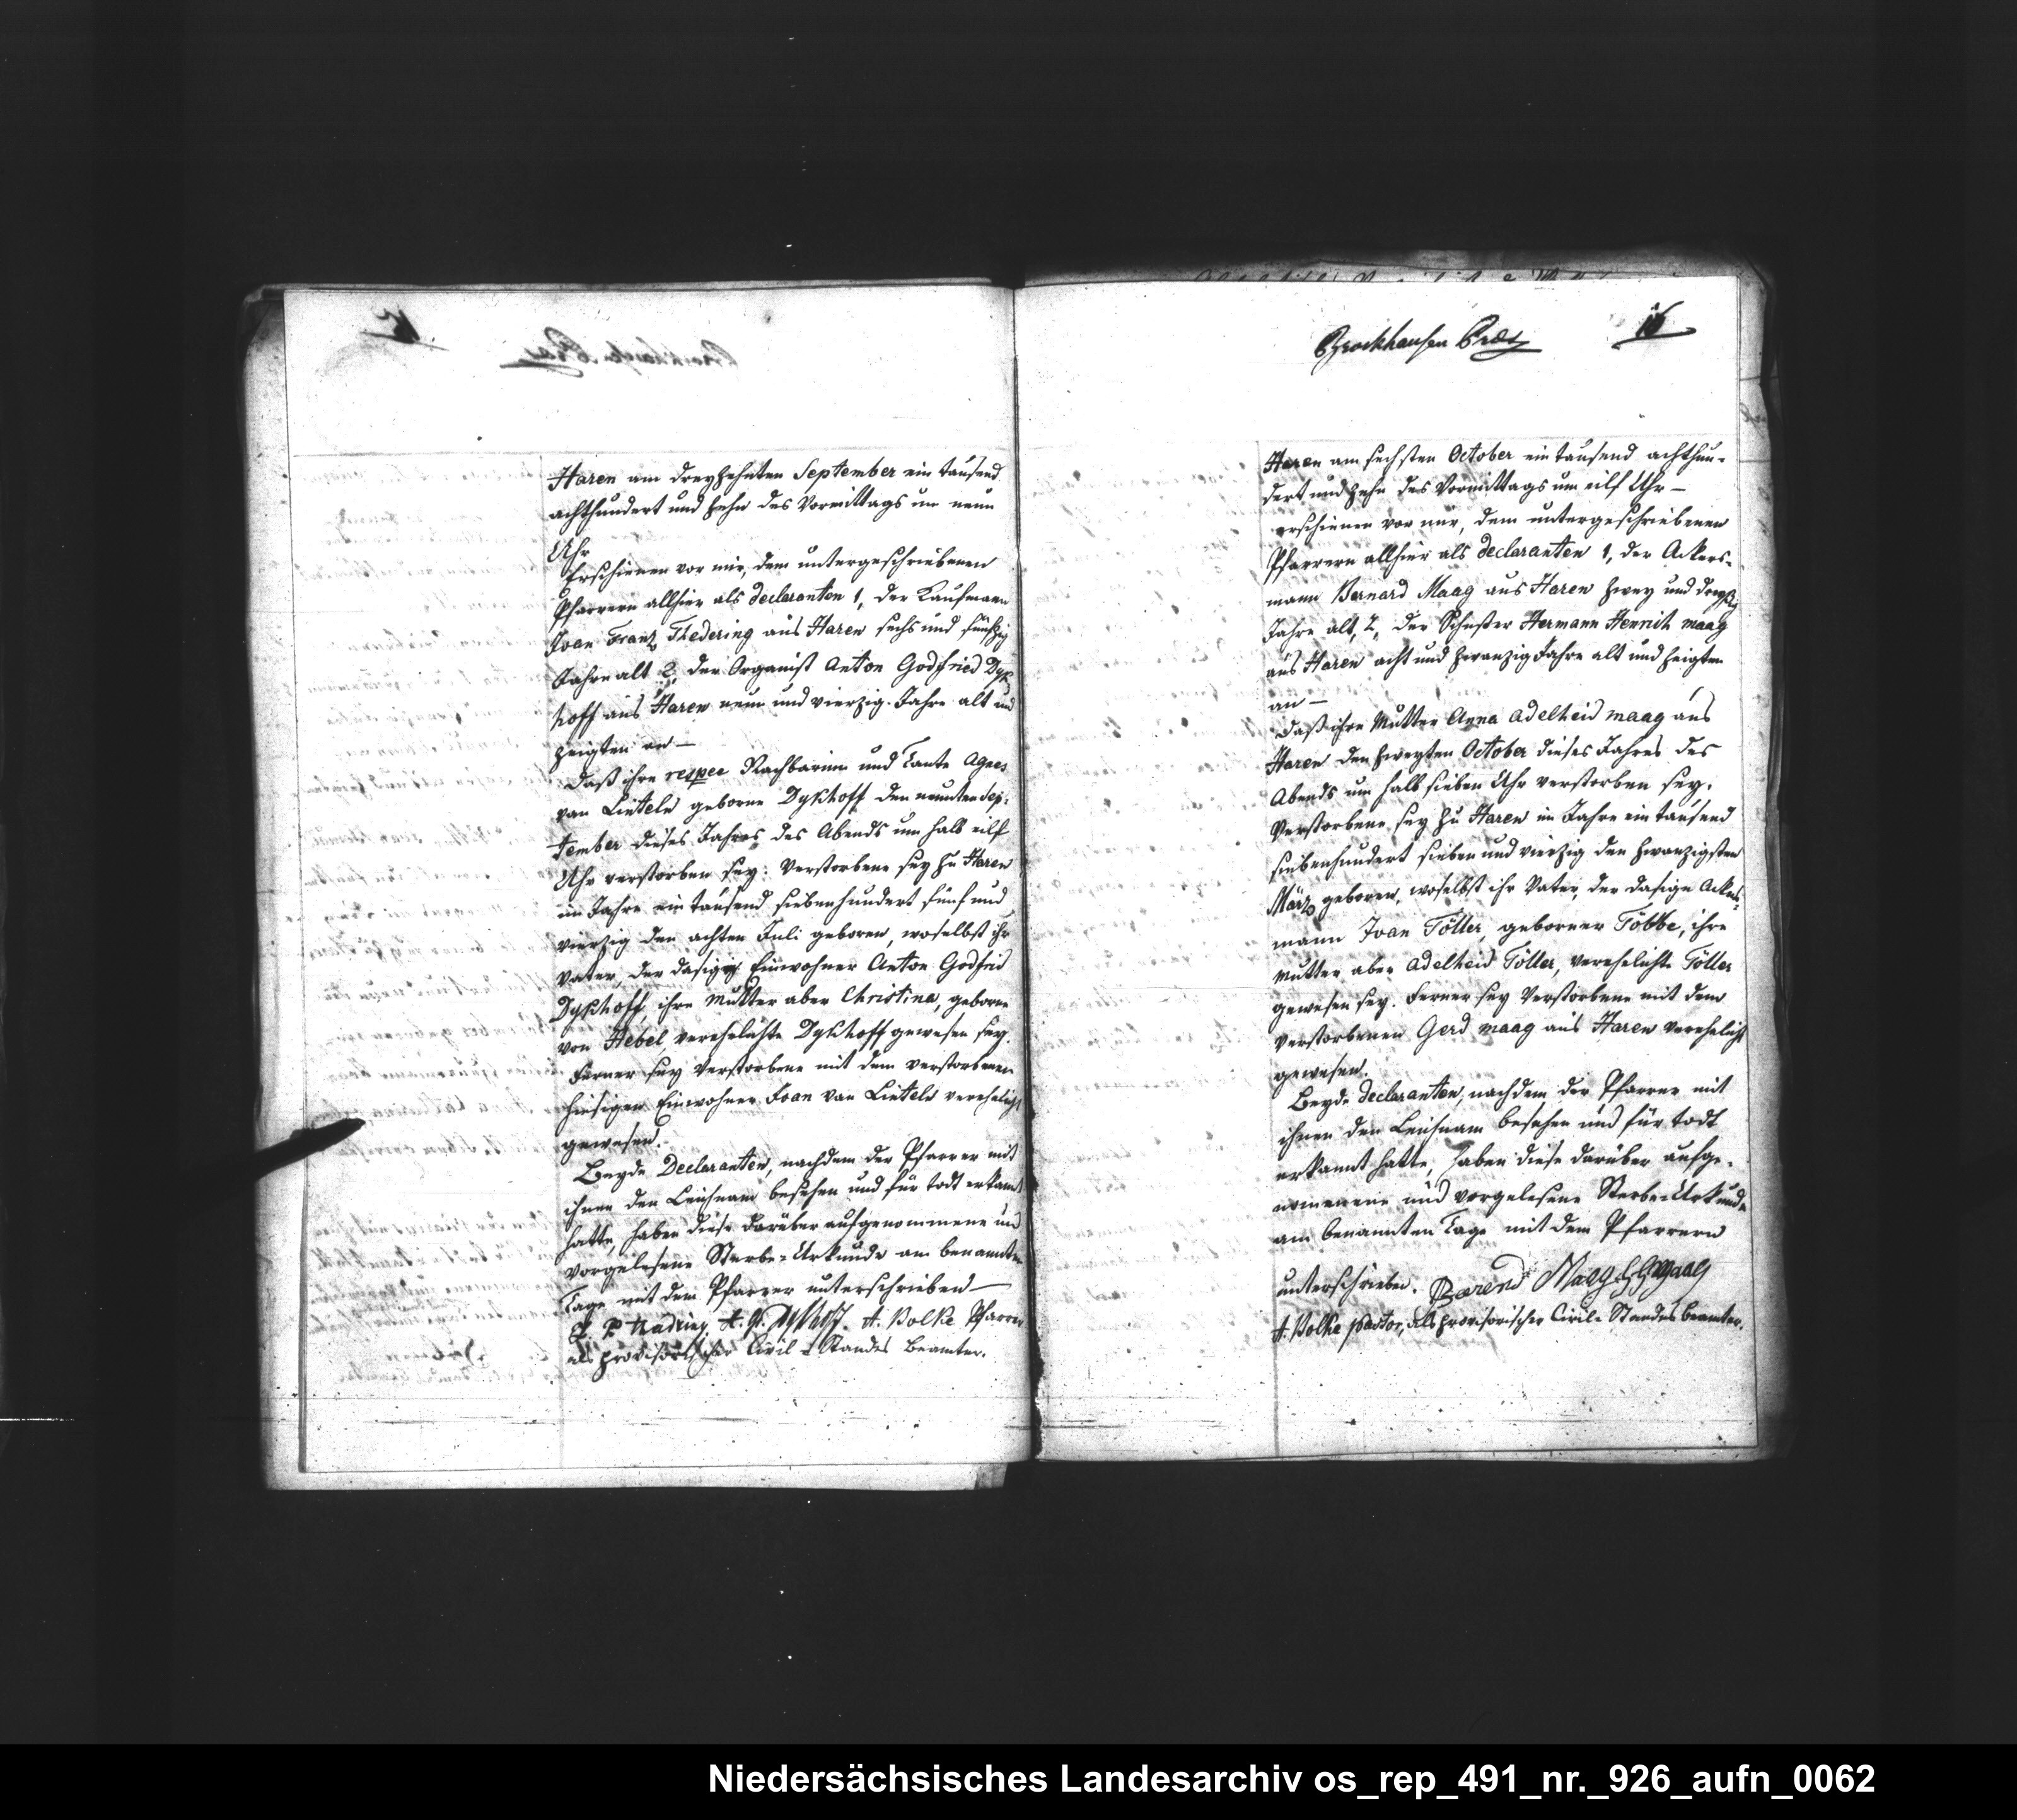 Haren am dreyzehnten September ein tausend
achthundert und zehn des Vormittags um neun
Uhr
Erschienen vor mir, dem untergeschriebenen
Pfarrern allhier als declaranten 1, der Kaufmann
Joan Franz Thedering aus Haren sechs und fünfzig
Jahre alt 2, der Organist Anton Godfried Dyk
hoff aus Haren neun und vierzig Jahre alt und
zeigten an –
daß ihre respec Nachbarinn und Tante Agnes
van Lintelo geborne Dykhoff den neunten Sep=
tember dieses Jahres des Abends um halb eilf
Uhr verstorben sey: Verstorbene sey zu Haren
im Jahre ein tausend siebenhundert fünf und
vierzig den achten Juli geboren, woselbst ihr
Vater, der dasige Einwohner Anton Godfrid
Dykhoff, ihre Mutter aber Christina, geborne
von Hebel, verehelichte Dykhoff gewesen sey.
Ferner sey Verstorbene mit dem verstorbenen
hiesigen Einwohner Joan van Lintelo verehelicht
gewesen.
Beyde Declaranten, nachdem der Pfarrer mit
ihnen den Leichnam besehen und für todt erkannt
hatte, haben diese darüber aufgenommene und
vorgelesene Sterbe=Urkunde am benannten
Tage mit dem Pfarrer unterschrieben –
A. G. Dykhoff. A. Volke Pfarrer
als provisorischer Civil=Standes Beamter.
Brockhausen Præs
16
Haren am sechsten October ein tausend achthun=
dert und zehn des Vormittags um eilf Uhr –
erschienen vor mir, dem untergeschriebenen
Pfarrern allhier als declaranten 1, der Ackers=
mann Bernard Maag aus Haren zwey und dreyßig
Jahre alt, 2, der Schuster Hermann Henrich maag
aus Haren acht und zwanzig Jahre alt und zeigten
an –
daß ihre Mutter Anna adelheid maag aus
Haren den zweyten October dieses Jahres des
Abends um halb sieben Uhr verstorben sey.
Verstorbene sey zu Haren im Jahre ein tausend
siebenhundert sieben und vierzig den zwanzigsten
März geboren, woselbst ihr Vater, der dasige Ackers=
mann Joan Töller, geborner Többe, ihre
Mutter aber adelheid Töller, verehelichte Töller
gewesen sey. Ferner sey Verstorbene mit dem
verstorbenen Gerd maag aus Haren verehelicht
gewesen.
Beyde declaranten, nachdem der Pfarrer mit
ihnen den Leichnam besehen und für todt
erkannt hatte, haben diese darüber aufge=
nommene und vorgelesene Sterbe=Urkunde
am benannten Tage mit dem Pfarrern
unterschrieben. Barend Maag HHmaag
A. Volke pastor, als provisorischer Civil=Standes beamter.
Niedersächsisches Landesarchiv os_rep_491_nr._926_aufn_0062